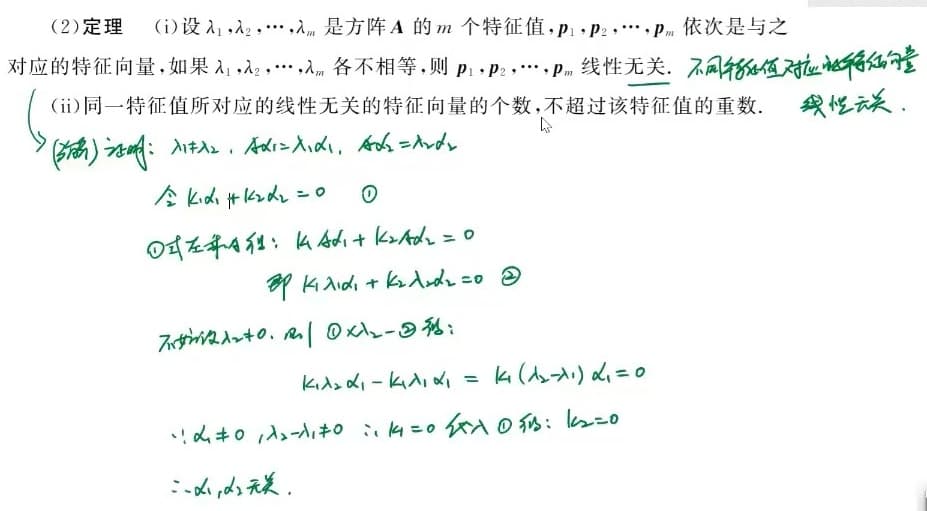 (2)定理 (ⅰ)设 λ₁,λ₂,⋯,λₘ 是方阵 A 的 m 个特征值,p₁,p₂,⋯,pₘ 依次是与之
对应的特征向量,如果 λ₁,λ₂,⋯,λₘ 各不相等,则 p₁,p₂,⋯,pₘ 线性无关. 不同特征值对应的特征向量
(ⅱ)同一特征值所对应的线性无关的特征向量的个数,不超过该特征值的重数. 线性无关.
证明: λ₁≠λ₂, Aα₁=λ₁α₁, Aα₂=λ₂α₂
令 k₁α₁+k₂α₂=0 ①
①式左乘A得: k₁Aα₁+k₂Aα₂=0
即 k₁λ₁α₁+k₂λ₂α₂=0 ②
不妨设λ₂≠0, 则 ①×λ₂-②得:
k₁λ₂α₁-k₁λ₁α₁ = k₁(λ₂-λ₁)α₁=0
∵α₁≠0,λ₂-λ₁≠0 ∴k₁=0 代入①得: k₂=0
∴α₁,α₂无关.